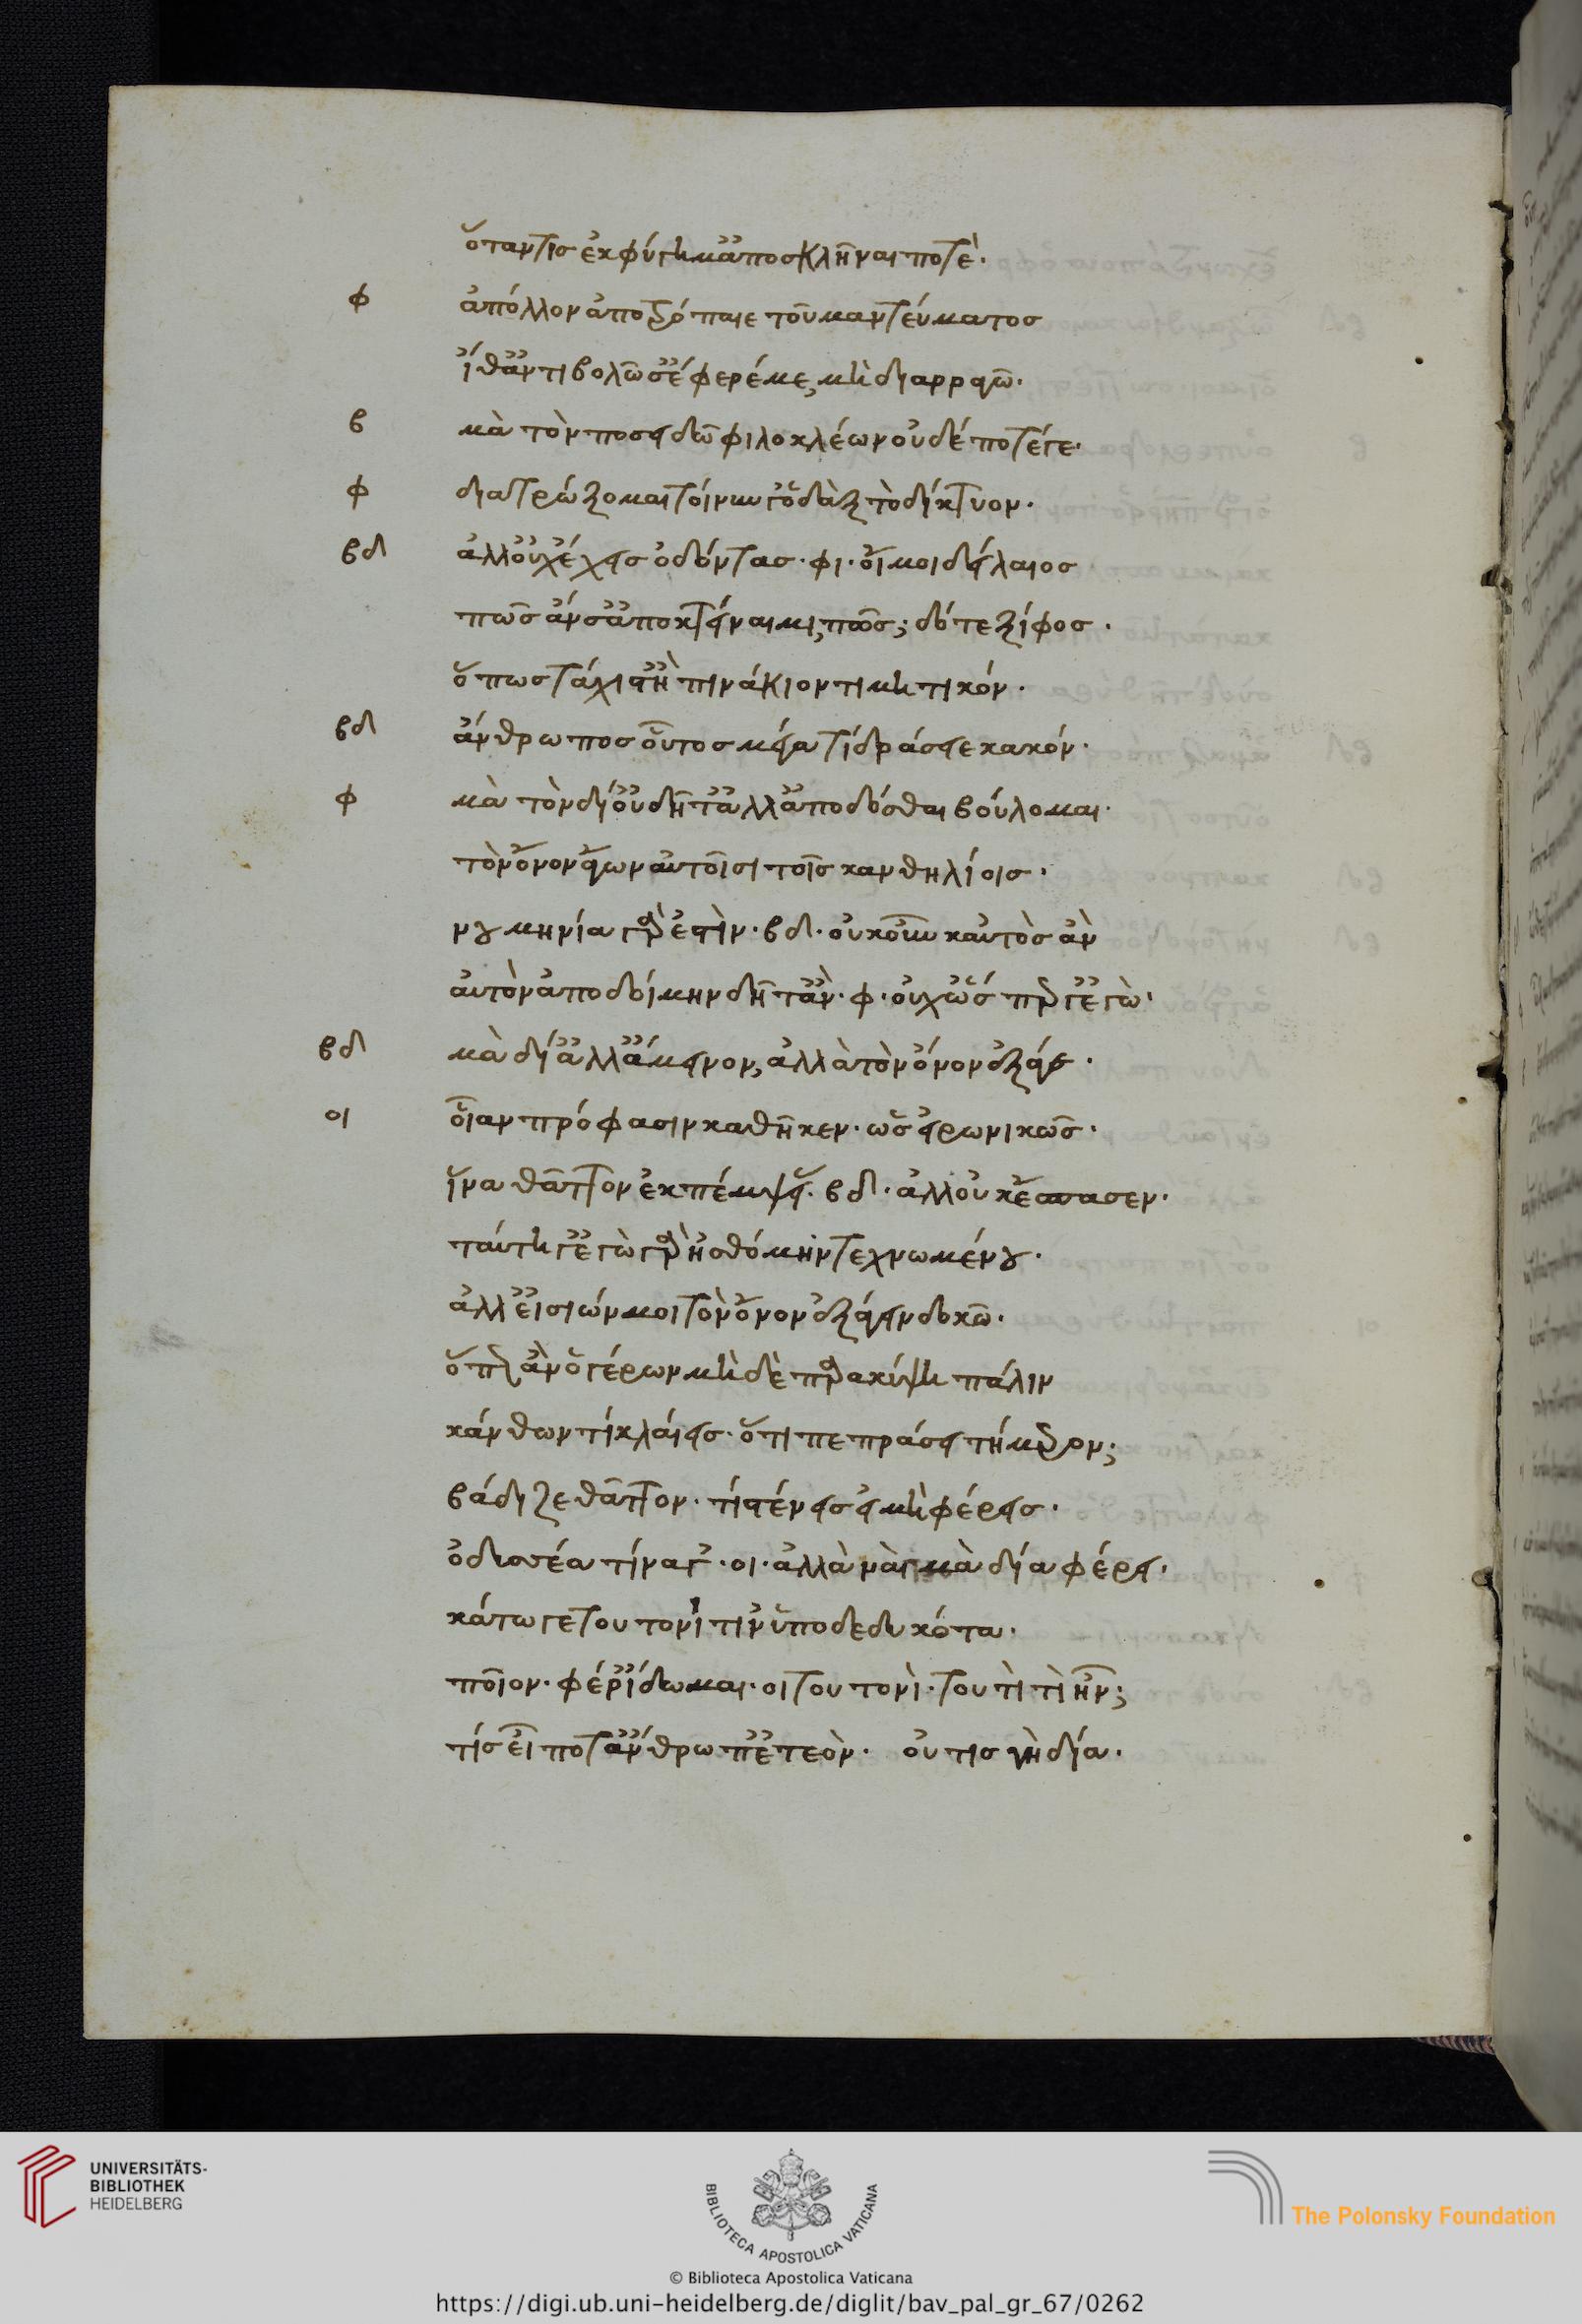 ὅταν τις ἐκφύγη μ' ἀποσκλῆναι ποτέ·
φ ἀπόλλον ἀποτρόπαιε τοῦ μαντεύματος
ἴθ' ἀντιβολῶ σ' ἔφερέ με, μὴ διαρραγῶ·
β μὰ τὸν ποσειδῶ φιλοκλέων οὐδέποτέ γε·
φ διατρώξομαι τοίνυν ὀδὰξ τὸ δίκτυον·
βδ ἀλλ' οὐχ ἔχεις ὀδόντας· φι· οἴμοι δείλαιος
πῶς ἄν σ' ἀποκτείναιμι, πῶς; δότε ξίφος·
ὅπως τάχιστ' ἢ πινάκιον τιμητικόν·
βδ ἄνθρωπος οὗτος μέγα τί δράσειε κακόν·
φ μὰ τὸν δί' οὐ δῆτ' ἀλλ' ἀποδόσθαι βούλομαι·
τὸν ὄνον ἄγων αὐτοῖσι τοῖς κανθηλίοις·
νουμηνία γὰρ ἐστὶν· βδ· οὐκοῦν καὐτὸς ἂν
αὐτὸν ἀποδοίμην δῆτ' ἂν· φ· οὐχ ὥσπερ γ' ἐγὼ·
βδ μὰ δί' ἀλλ' ἄμεινον, ἀλλὰ τὸν ὄνον ἔξαγε·
οι οἵαν πρόφασιν καθῆκεν· ὡς εἰρωνικῶς·
ἵνα θᾶττον ἐκπέμψει· βδ· ἀλλ' οὐκ ἔσπασεν·
ταύτη γ' ἐγὼ γὰρ ἠσθόμην τεχνωμένου·
ἀλλ' εἰσιών μοι τὸν ὄνον ἐξάγειν δοκῶ·
ὅπως ἂν ὁ γέρων μὴ δὲ παρακύψη πάλιν
κάνθων τί κλάεις· ὅτι πεπράσει τήμερον;
βάδιζε θᾶττον· τί στένεις εἰ μὴ φέρεις·
ὀδυσσέα τίνα γ'· οι· ἀλλὰ ναὶ μὰ δία φέρει·
κάτω γε τουτονί τιν' ὑποδεδυκότα·
ποῖον· φέρ' ἴδωμαι· οι τουτονὶ· τουτὶ τὶ ἦν;
τίς εἶ ποτ' ἄνθρωπ' ἐτεὸν· οὔτις νὴ δία·
UNIVERSITÄTS-
BIBLIOTHEK
HEIDELBERG
BIBLIOTECA APOSTOLICA VATICANA
The Polonsky Foundation
© Biblioteca Apostolica Vaticana
https://digi.ub.uni-heidelberg.de/diglit/bav_pal_gr_67/0262